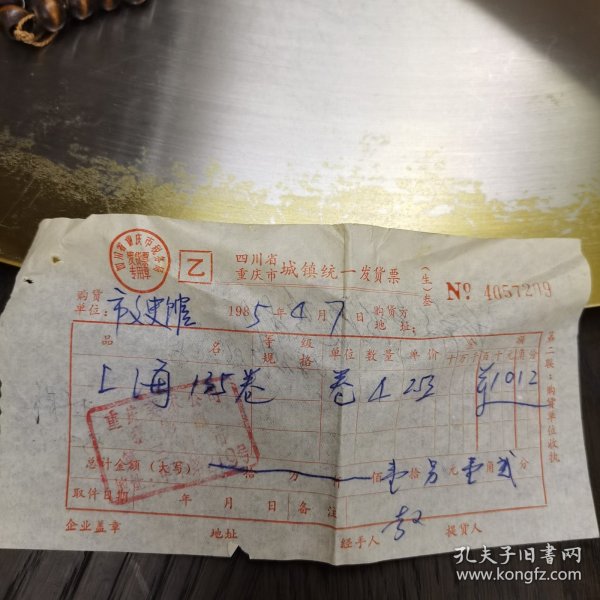 四川省重庆市税务局
发货票
专用章
乙
四川省
重庆市 城镇统一发货票
(生)叁
№ 4057299
购货单位: 市文史馆 1985年4月7日 购货方地址:
品名 等级规格 单位 数量 单价 金额
十万千百十元角分
上海135卷 卷 4 253 1012
总计金额(大写) 拾 佰壹拾另元壹角贰分
取件日期 年 月 日 备注
企业盖章 地址 经手人 提货人
第二联:购货单位收执
孔夫子旧书网
www.kongfz.com